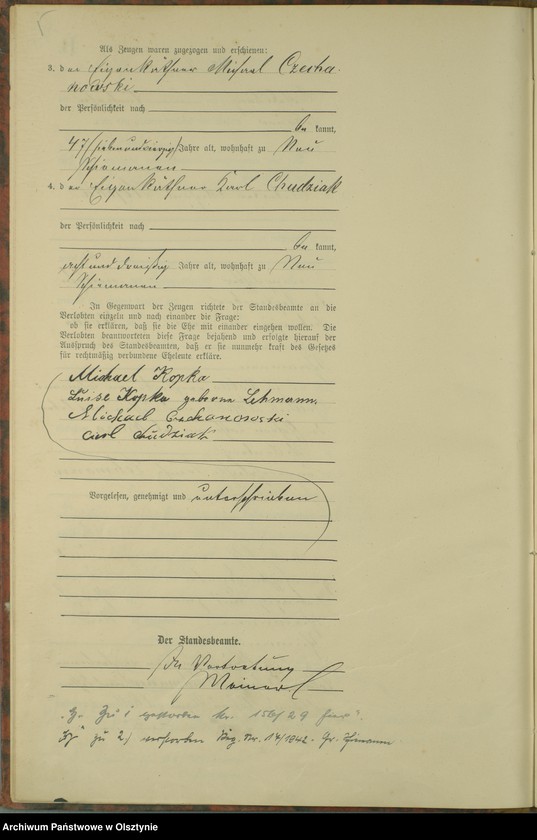 Als Zeugen waren zugezogen und erschienen:
3. der Eigenkäthner Michael Czecha-
nowski
der Persönlichkeit nach
be kannt,
47 (siebenundvierzig) Jahre alt, wohnhaft zu Neu
Schiemanen
4. der Eigenkäthner Karl Chudziak
der Persönlichkeit nach
be kannt,
acht und dreißig Jahre alt, wohnhaft zu Neu
Schiemanen
In Gegenwart der Zeugen richtete der Standesbeamte an die
Verlobten einzeln und nach einander die Frage:
ob sie erklären, daß sie die Ehe mit einander eingehen wollen. Die
Verlobten beantworteten diese Frage bejahend und erfolgte hierauf der
Ausspruch des Standesbeamten, daß er sie nunmehr kraft des Gesetzes
für rechtmäßig verbundene Eheleute erkläre.
Michael Kopka
Luise Kopka geborne Lehmann
Michael Czechanowski
Carl Chudziak
Vorgelesen, genehmigt und unterschrieben
Der Standesbeamte.
In Vertretung
zu 1 gestorben Nr. 29 hier
zu 2) verstorben Nr. 14/1942
Archiwum Państwowe w Olsztynie